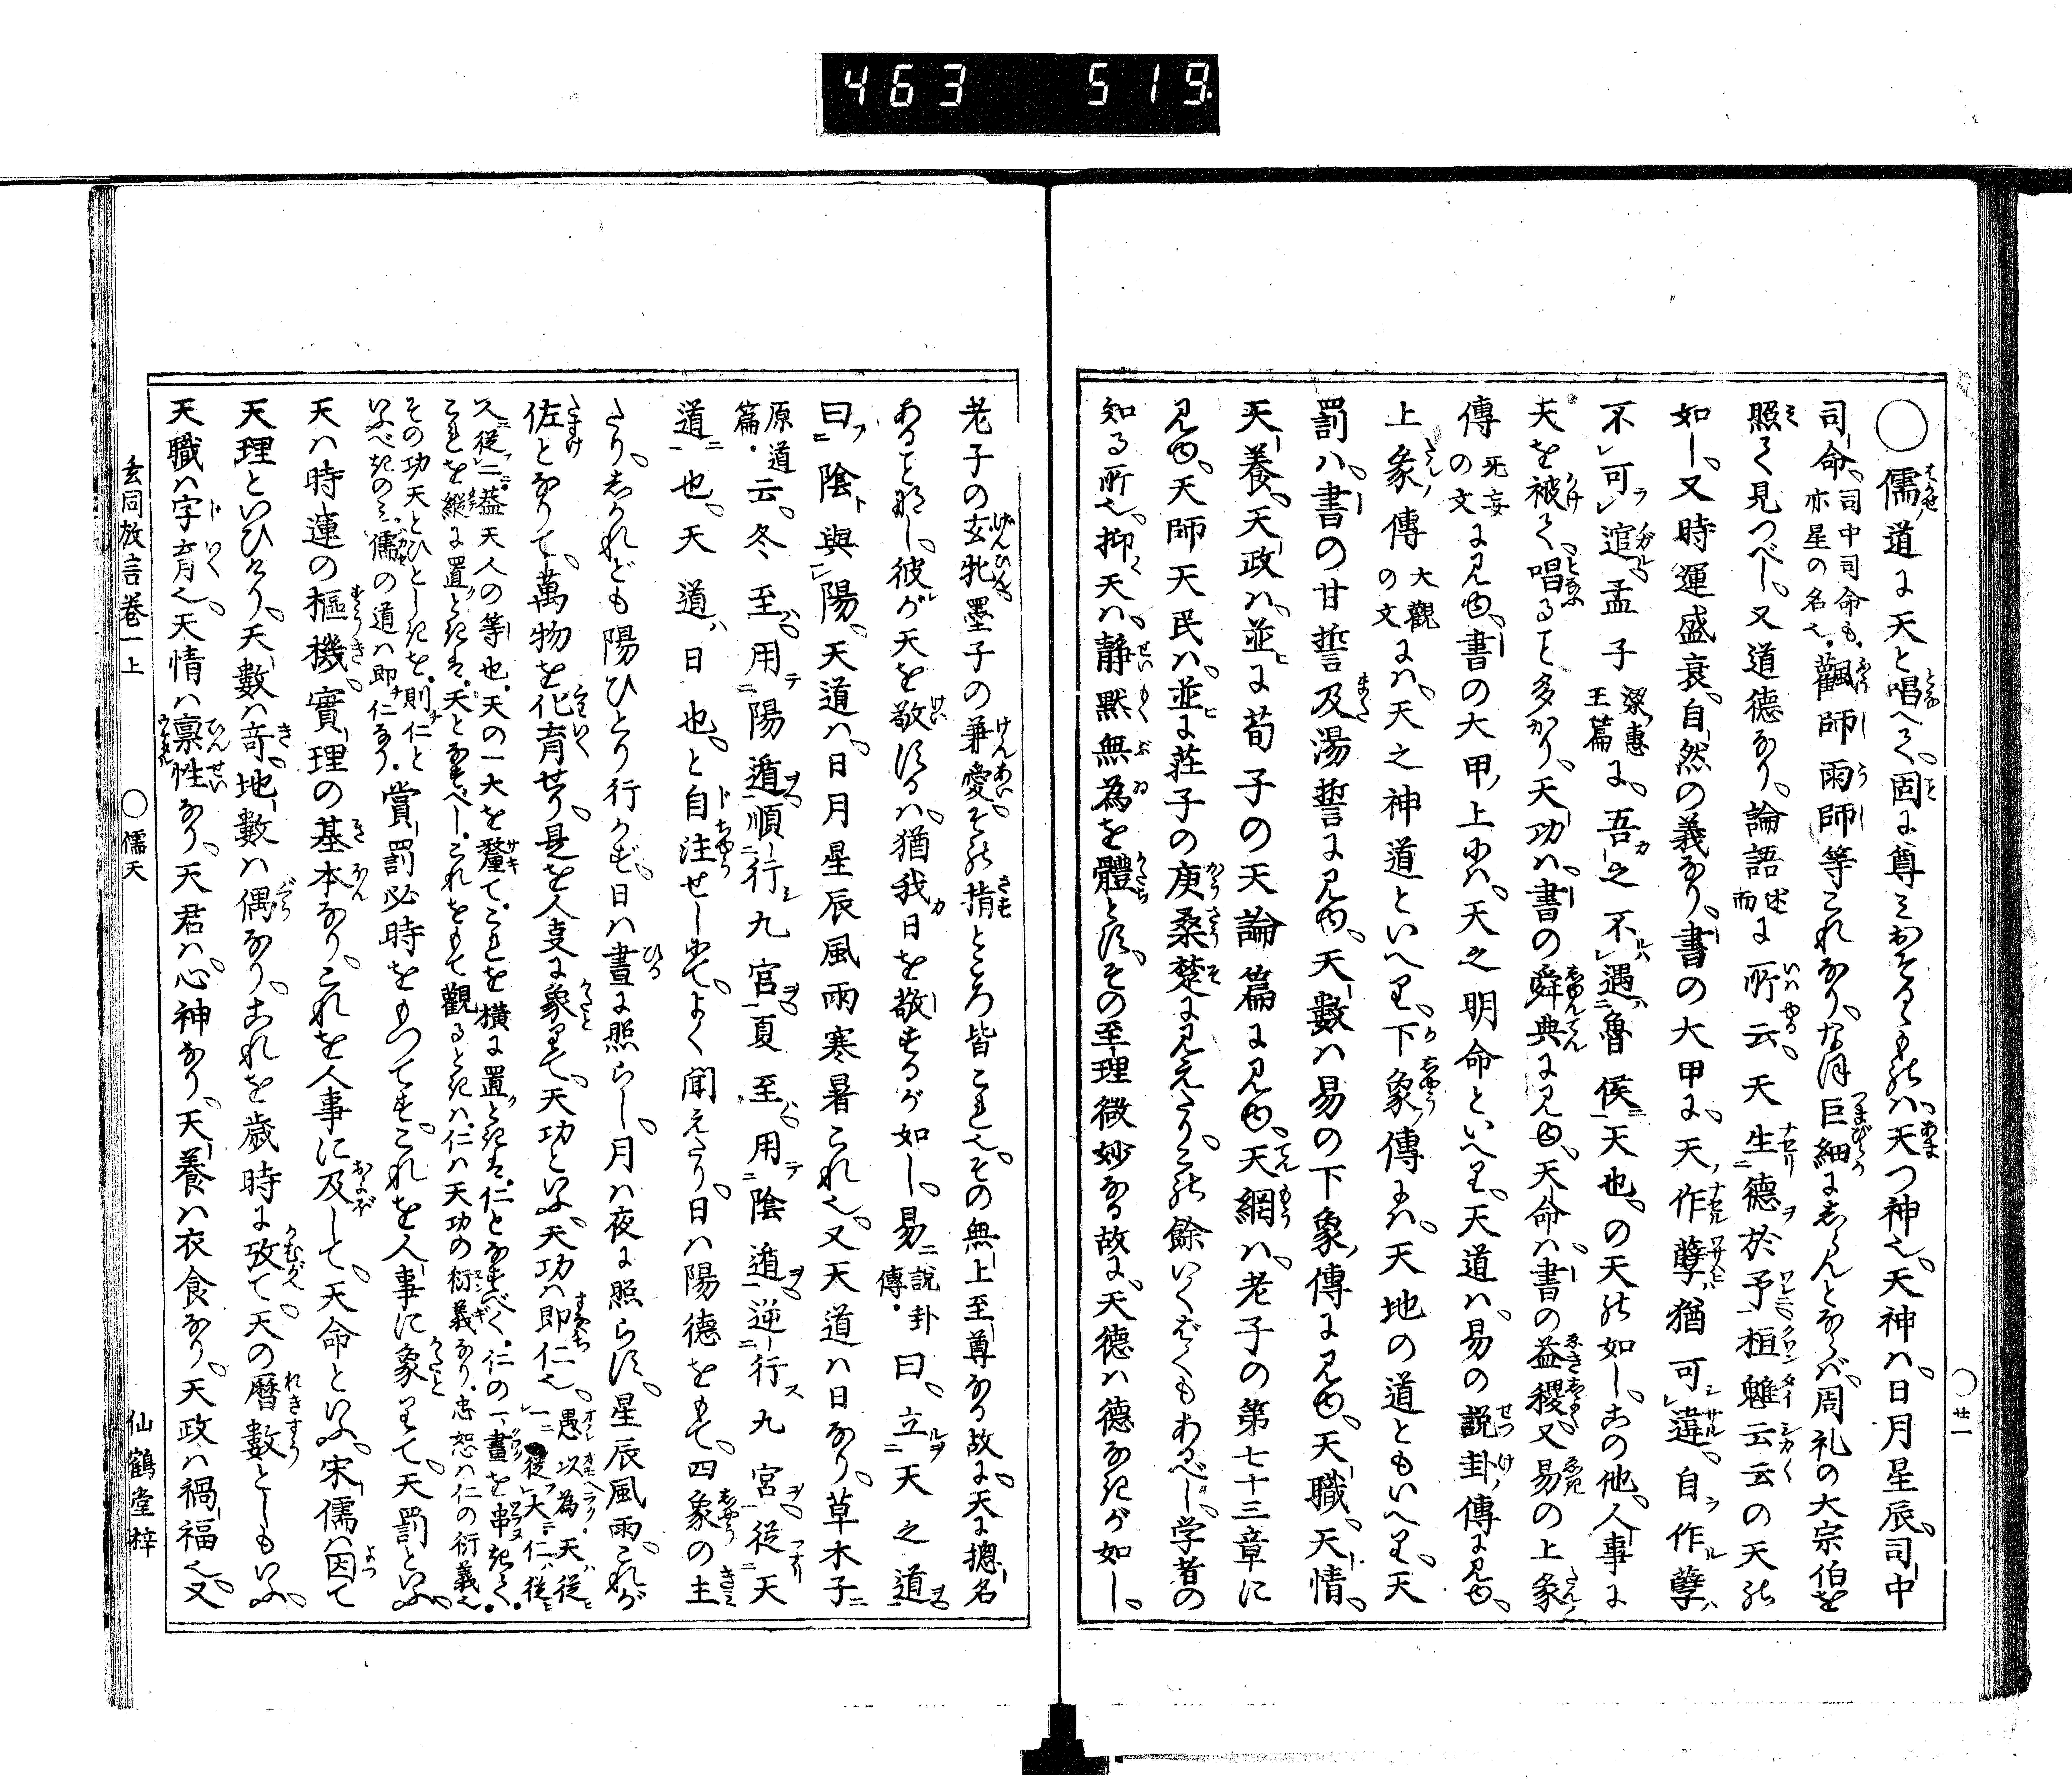 463 519.
○儒道に天と唱へて、固に尊みおそるゝものは、天つ神也、天神は、日月星辰、司中
司命、司中司命も、亦星の名也、飌師雨師等これなり、なほ巨細にしらんとならば、周礼の大宗伯を
照て見つべし、又道德なり、論語述而に所云、天生德於予、桓魋云云の天の
如し、又時運盛衰、自然の義なり、書の大甲に、天作孽猶可違、自作孽
不可逭、孟子梁惠王篇に、吾之不遇魯侯天也、の天の如し、この他、人事に
天を被て、唱ること多かり、天功は、書の舜典に見ゆ、天命は、書の益稷又易の上象
傳无妄の文に見ゆ、書の大甲上には、天之明命といへり、天道は、易の説卦傳に見ゆ、
上象傳大觀の文には、天之神道といへり、下象傳には、天地の道ともいへり、天
罰は、書の甘誓及湯誓に見ゆ、天數は易の下象傳に見ゆ、天職、天情、
天養、天政は、並に荀子の天論篇に見ゆ、天網は、老子の第七十三章に
見ゆ、天師天民は、並に荘子の庚桑楚に見えたり、この餘いくばくもあるべし、学者の
知る所也、抑天は、静默無為を體とす、その至理微妙なる故に、天德は德なきが如し、
○廿一
老子の玄牝墨子の兼愛、その指ところ皆これ也、その無上至尊なる故に、天に揔名
あること那し、彼が天を敬するは、猶我日を敬するが如し、易説卦傳曰、立天之道
曰陰與陽、天道は、日月星辰風雨寒暑これ也、又天道は日なり、草木子
原道篇云、冬至用陽遁順行九宮、夏至用陰遁逆行九宮、従天
道也、天道日也、と自注せしにて、よく聞えたり、日は陽德をもて、四象の主
たり、しかれども陽ひとり行かず、日は晝に照らし、月は夜に照らす、星辰風雨、これが
佐となりて、萬物を化育せり、是を人事に象りて、天功といふ、天功は即仁也、愚以為天従一従大、仁従
人従二、益天人の等也、天の一大を釐て、これを横に置ときは、仁となすべく、仁の一畫を串きて、
これを縦に置ときは、天となすべし、これをもて觀るときは、仁は天功の衍義なり、忠恕は仁の衍義也、
その功天とひとしきを、則仁と
いふべきのみ、儒の道は即仁なり、賞罰必時をもつてす、これを人事に象りて、天罰といふ、
天は時運の樞機、實理の基本なり、これを人事に及して、天命といふ、宋儒は因て
天理といひけり、天數は奇、地數は偶なり、これを歳時に攷て、天の暦數としもいふ、
天職は字育也、天情は禀性なり、天君は心神なり、天養は衣食なり、天政は禍福也、又
玄同放言巻一上 ○儒天 仙鶴堂梓